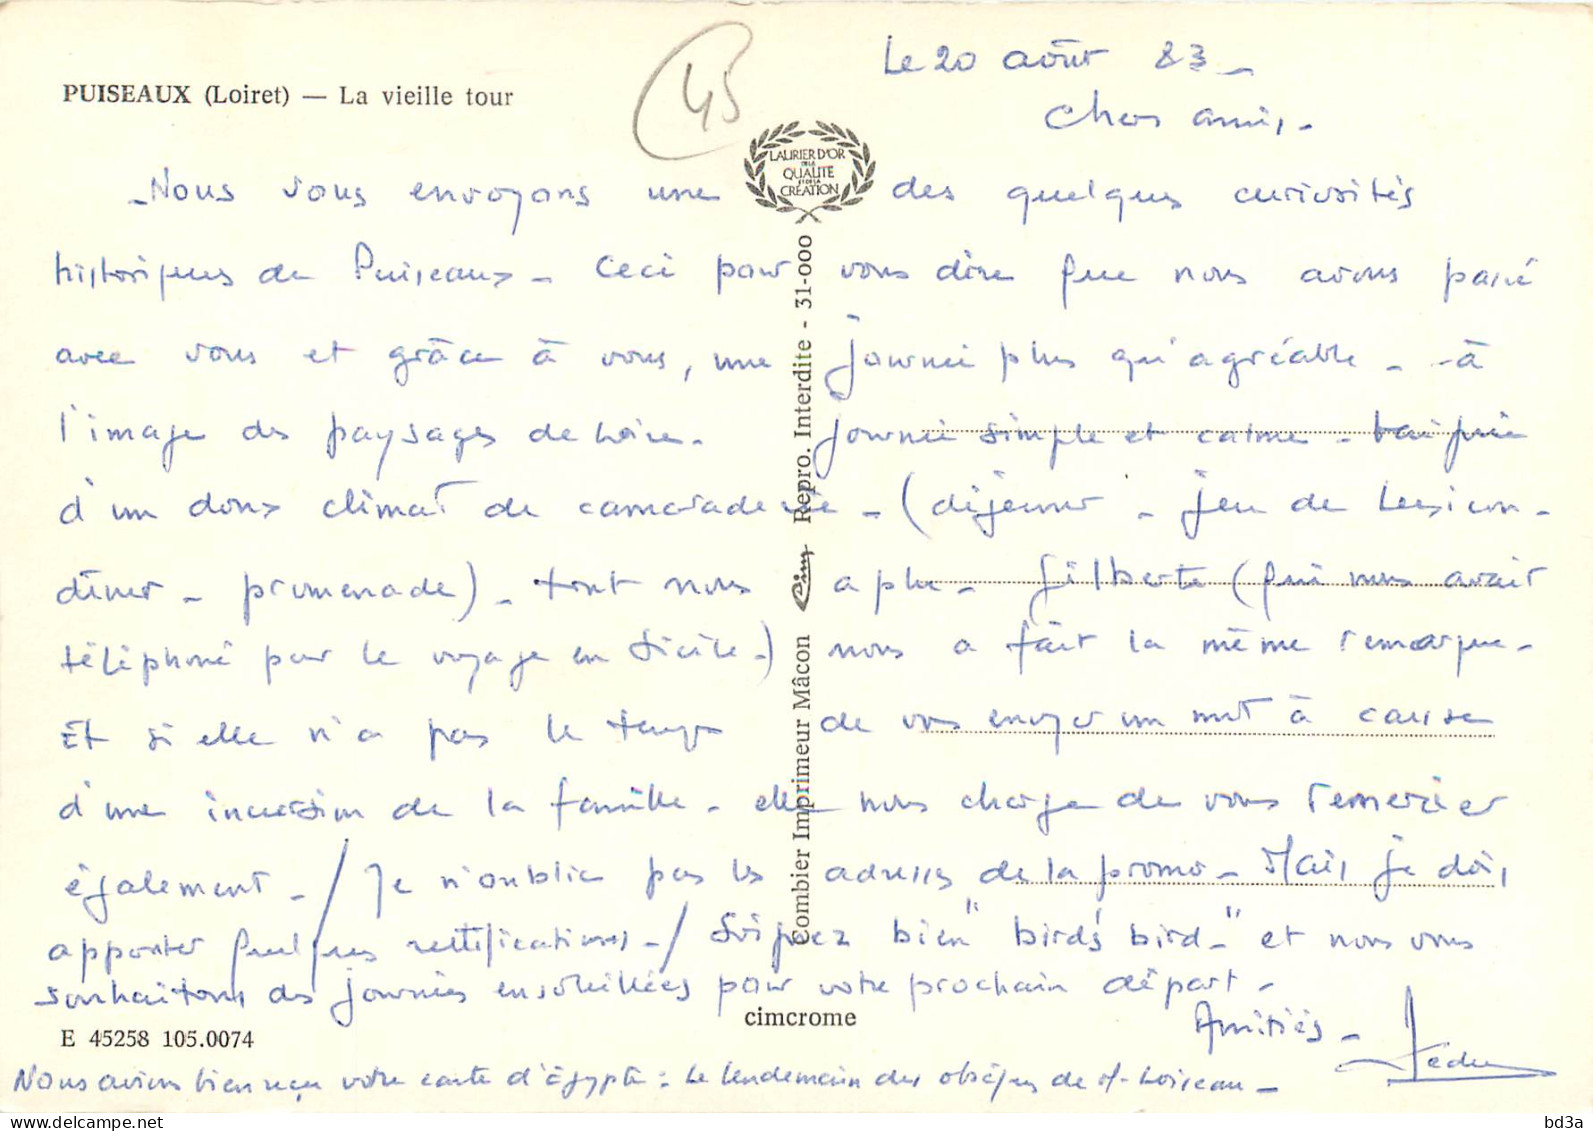 PUISEAUX (Loiret) — La vieille tour
45
Le 20 août 83_
Chers amis,-
LAURIER D'OR
DE LA
QUALITE
ET DE LA
CREATION
-Nous vous envoyons une des quelques curiosités
historiques de Puiseaux - Ceci pour vous dire que nous avons passé
avec vous et grâce à vous, une journée plus qu'agréable - - à
l'image des paysages de Loire. journée simple et calme -
d'un doux climat de camaraderie - (déjeuner - jeu de Lexicon -
dîner - promenade) - tout nous a plu - Gilberte (qui nous avait
téléphoné pour le voyage en Sicile -) nous a fait la même remarque -
Et si elle n'a pas le temps de vous envoyer un mot à cause
d'une incursion de la famille - elle nous charge de vous remercier
également - / Je n'oublie pas les adresses de la promo - Mais je dois
apporter quelques rectifications - / Soignez bien "bird's bird-" et nous vous
souhaitons des journées ensoleillées pour votre prochain départ -
Amitiés -
Nous avions bien reçu votre carte d'Égypte : le lendemain des obsèques de M. Loiseau -
Combier Imprimeur Mâcon Cim Repro. Interdite - 31-000
cimcrome
E 45258 105.0074
bd3a